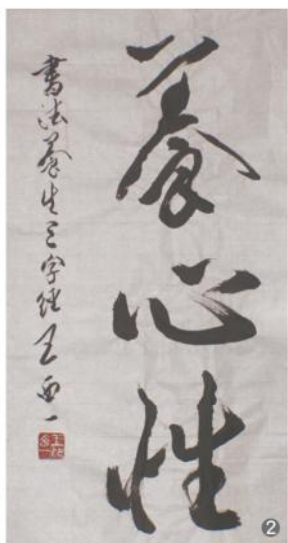 養心性
書法養生三字經 王 一
2